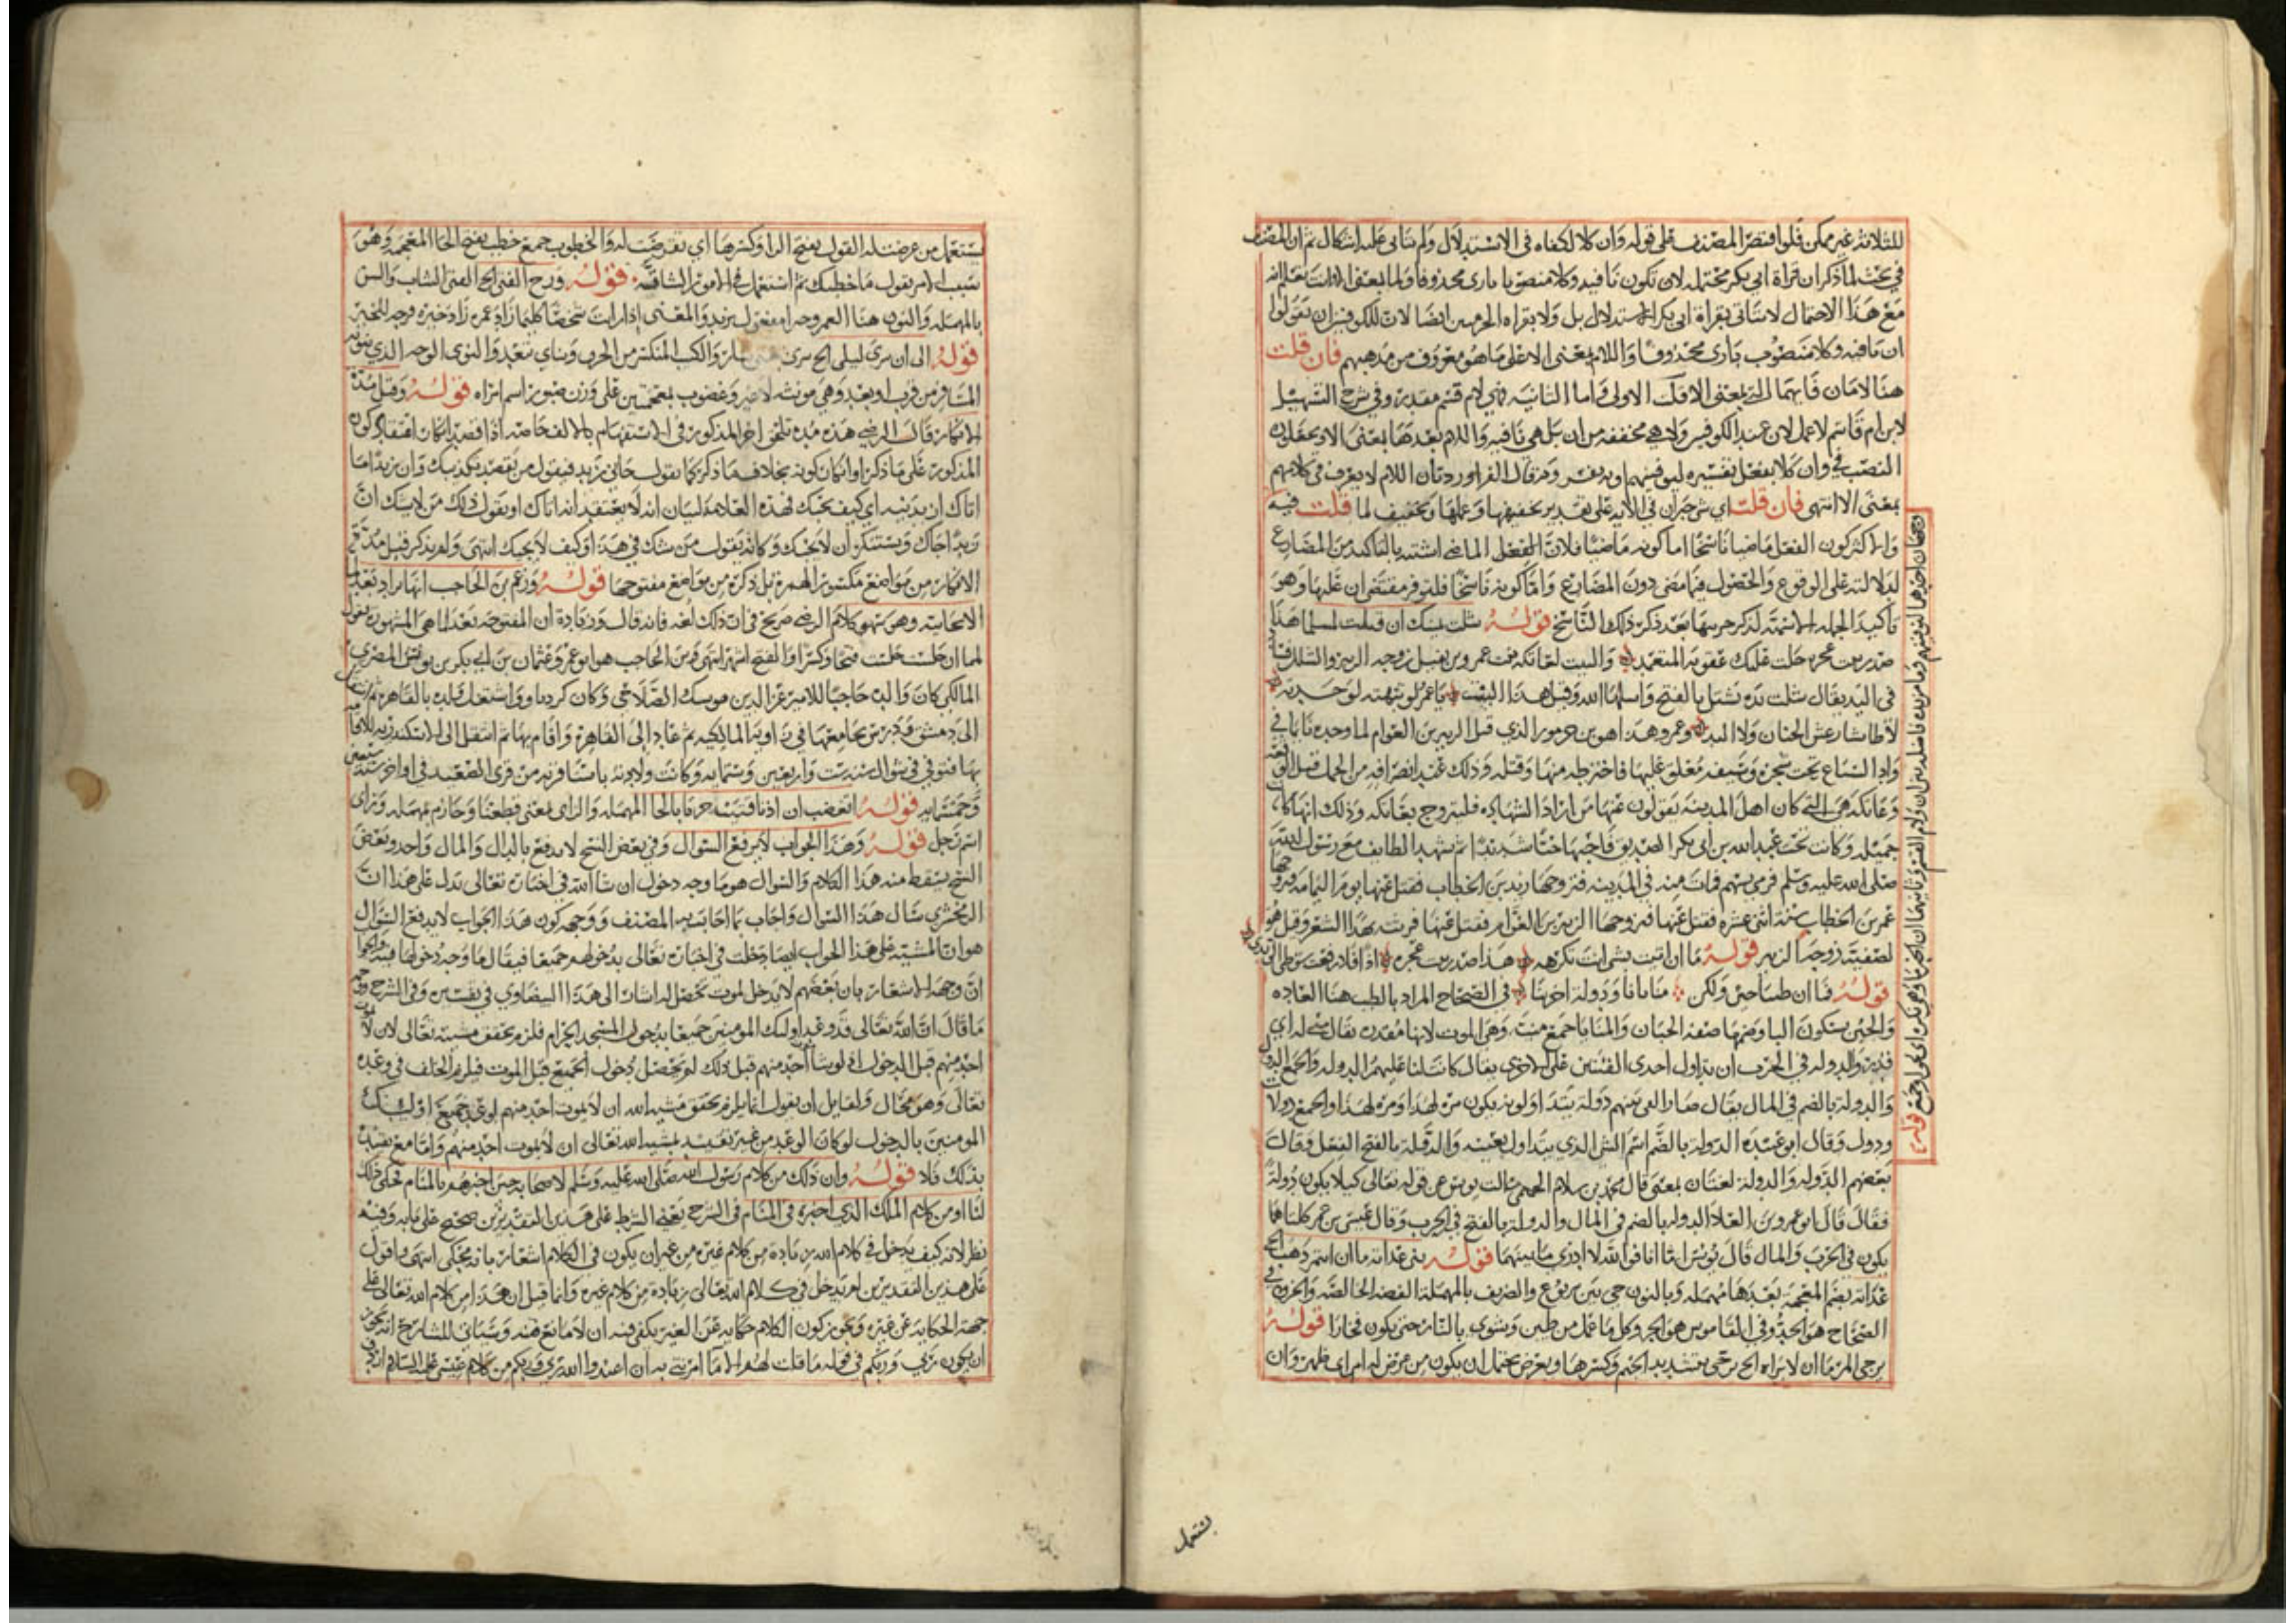 للثلاثة غير ممكن فلو اقتصر المصنف على قوله وان كلا لكفاه في الاستدلال ولم يتأتى عليه اشكال ثم ان المصنف
في بحث لما ذكر ان قراة ابي بكر محتملة لان تكون نافية وكلا منصوبا بارى محذوفا ولما بمعنى الا وانت تعلم انه
مع هذا الاحتمال لا يتاتى بقراة ابي بكر الاستدلال بل ولا بقراه الحرميين ايضا لان للكوفيين ان يقولوا
ان نافية وكلا منصوب بارى محذوفا واللام بمعنى الا على ما هو معروف من مذهبهم فان قلت
هنا لامان فايهما التي بمعنى الا قلت الاولى واما الثانيه فهي لام قسم مقدر وفي شرح التسهيل
لابن ام قاسم لا عمل لان عند الكوفيين ولا هي مخففه من ان بل هي نافيه واللام بعدها بمعنى الا ويجعلون
النصب في وان كلا بفعل تفسيره ليوفينهم او بغير وقد قال الفرا ورد بان اللام لا يعرف في كلامهم
بمعنى الا انتهى فان قلت اي شي خبر ان في الآية على تقدير تخفيفها وعملها وتخفيف لما قلت فيه
والاكثر كون الفعل ماضيا ناسخا اما كونه ماضيا فلان الفعل الماضي اشبه بالتاكيد من المضارع
لدلالته على الوقوع والحصول فيما مضى دون المضارع واما كونه ناسخا فلتوفر مقتضى ان عليها وهو
تاكيد الجملة الاسمية لذكر جزءيها بعد ذكر ذلك الناسخ قوله شلت يمينك ان قتلت لمسلما هذا
صدر بيت عجزه حلت عليك عقوبة المتعمد والبيت لعاتكه بنت عمرو بن نفيل زوجة الزبير والشلل فساد
في اليد يقال شلت يده تشل بالفتح واشلها الله وقبل هذا البيت يا عمرو لو نبهته لوجدته
لا طائشا رعش الجنان ولا اليد وعمرو هذا هو بن جرموز الذي قتل الزبير بن العوام لما وجده نائما في
وادي السباع تحت شجرة وسيفه معلق عليها فاخترطه منها وقتله وذلك عند انصرافه من الجمل قبل ان
وعاتكه هي التي كان اهل المدينة يقولون عنها من اراد الشهادة فليتزوج بعاتكه وذلك انها كانت
جميله وكانت تحت عبد الله بن ابي بكر الصديق فاحبها حبا شديدا ثم شهد الطائف مع رسول الله
صلى الله عليه وسلم فرمي بسهم فمات منه في المدينه فتزوجها زيد بن الخطاب فقتل عنها يوم اليمامه فتزوجها
عمر بن الخطاب سنة اثنى عشره فقتل عنها فتزوجها الزبير بن العوام فقتل عنها فرثته بهذا الشعر وقيل هو
لصفية زوجة الزبير قوله ما ان اتيت بشي انت تكرهه هذا صدر بيت عجزه اذا فلا رفعت سوطي الي يدي
قوله فما ان طبنا جبن ولكن منايانا ودولة اخرينا في الصحاح المراد بالطب هنا العاده
والجبن بسكون البا وضمها صفة الجبان والمنايا جمع منية وهي الموت لانها مقدره يقال منى له اي
قدر والدوله في الحرب ان يداول احدى الفئتين على الاخرى يقال كانت لنا عليهم الدوله والجمع الدول
والدولة بالضم في المال يقال صار الفي بينهم دولة يتداولونه يكون مرة لهذا ومرة لهذا والجمع دولات
ودول وقال ابو عبيده الدولة بالضم اسم الشي الذي يتداول بعينه والدولة بالفتح الفعل وقال
بعضهم الدوله والدولة لغتان بمعنى قال محمد بن سلام الجمحي سالت يونس عن قوله تعالى كيلا يكون دولة
فقال قال ابو عمرو بن العلا الدوله بالضم في المال والدولة بالفتح في الحرب وقال عيسى بن عمر كلتاهما
يكون في الحرب والمال قال يونس اما انا فوالله لا ادري ما بينهما قوله بني غدانة ما ان انتم ذهب الخ
غدانة بضم المعجمة بعدها مهمله وبالنون حي من يربوع والصريف بالمهملة الفضه الخالصه والخزف في
الصحاح هو الجر وفي القاموس هو الجر وكل ما عمل من طين وشوي بالنار حتى يكون فخارا قوله
يرجي المرء ما ان لا يراه الخ يرجي بتشديد الجيم وكسرها ويعرض يحتمل ان يكون من عرض له امر اي ظهر وان
يستعمل
يستعمل من عرضت له القول بفتح الرا وكسرها اي تعرضت له والخطوب جمع خطب بفتح الخا المعجمة وهو
سبب الامر يقول ما خطبك ثم استعمل في الامور الشاقة قوله ورج الفتى الخ الفتى الشاب والسن
بالمهملة والنون هنا العمر وخيرا مفعول يزيد والمعنى اذا رايت شخصا كلما زاد عمره زاد خيره فرجه للخير
قوله الى ان سرى ليلى الخ سرى بمعنى سار والكئيب المنكسر من الحزن ويناي تبعد والنوى الوجه الذي ينويه
المسافر من قرب او بعد وهي مونثه لا غير وغضوب بمعجمتين على وزن صبور اسم امراه قوله وقبل مدة
الانكار قال الرضي هذه مدة تلحق اخر المذكور في الاستفهام بالالف خاصه اذا قصد انكار اعتقاد كون
المذكور على ما ذكر او انكار كونه بخلاف ما ذكر كما تقول جاني زيد فيقول من يقصد تكذيبك وان زيدا ما
اتاك ازيدنيه اي كيف يجيك فهذه العلامة لبيان انه لا يعتقد انه اتاك او يقول ذلك من لا يشك ان
زيدا جاك ويستنكر ان لا يجيك وكانه يقول من شك في هذا وكيف لا يجيك انتهى ولم يذكر قبل مدة
الانكار من مواضع مكسورة الهمزة بل ذكره من مواضع مفتوحها قوله وزعم بن الحاجب انها تزاد بعد لما
الايجابية وهو سهو كلام الرضي صريح في ان ذلك لغه فانه قال وزيادة ان المفتوحة بعد لما هي المشهورة تقول
لما ان جلست جلست فتحا وكسرا والفتح اشهر انتهى وبن الحاجب هو ابو عمرو عثمان بن ابي بكر بن يونس المصري
المالكي كان والده حاجبا للامير عز الدين موسك الصلاحي وكان كرديا واشتغل ولده بالقاهرة ثم انتقل
الى دمشق ودرس بجامعها في زاوية المالكيه ثم عاد الى القاهرة واقام بها ثم انتقل الى الاسكندريه للاقامة
بها فتوفي في شوال سنة ست واربعين وستمايه وكانت ولادته باسنا قرية من قرى الصعيد في اواخر سنة سبعين
وخمسمايه قوله اتغضب ان اذنا قتيبة حزتا بالحا المهمله والزاى بمعنى قطعتا وحازم بمهمله وزاى
اسم رجل قوله وهذا الجواب لا يرفع السوال وفي بعض النسخ لا يدفع بالدال والمال واحد وبعض
النسخ يسقط منه هذا الكلام والسوال هو ما وجه دخول ان شا الله في اخباره تعالى يدل على هذا ان
الزمخشري سال هذا السوال واجاب بما اجاب به المصنف ووجه كون هذا الجواب لا يدفع السوال
هو ان المشية على هذا الجواب ايضا دخلت في اخباره تعالى بدخولهم جميعا فيقال ما وجه دخولها فيه والجواب
ان وجهه الاشعار بان بعضهم لا يدخل لموت تحصل له اشار الى هذا البيضاوي في تفسيره وفي الشرح وجه
ما قال ان الله تعالى قد وعد اوليك المومنين جميعا بدخول المسجد الحرام فلزم تحقق مشيته تعالى لان لا يموت
احد منهم قبل الدخول اذ لو شا موت احد منهم قبل ذلك لم يحصل دخول الجميع قبل الموت فيلزم الخلف في وعده
تعالى وهو محال ولقايل ان يقول انما يلزم تحقق مشية الله ان لا يموت احد منهم لو وعد جميع اوليك
المومنين بالدخول لو كان الوعد من غير تقييد بمشية الله تعالى ان لا يموت احد منهم واما مع تقييده
بذلك فلا قوله وان ذلك من كلام رسول الله صلى الله عليه وسلم لاصحابه حين اخبرهم بالمنام فحكى ذلك
لنا او من كلام الملك الذي اخبره في المنام في الشرح بعض الشرط على هذين التقديرين صحيح على بابه وفيه
نظر لانه كيف يدخل في كلام الله زيادة من كلام غيره من غير ان يكون في الكلام اشعار بانه محكي انتهى واقول
على هذين التقديرين لم يدخل في كلام الله تعالى زيادة من كلام غيره وانما قيل ان هذا من كلام الله تعالى على
جهة الحكاية عن غيره وتجويز كون الكلام حكاية عن الغير يكفي فيه ان لا مانع منه وسياتي للشارح انه يجوز
ان يكون ربي وربكم في قوله ما قلت لهم الا ما امرتني به ان اعبدوا الله ربي وربكم من كلام عيسى عليه السلام